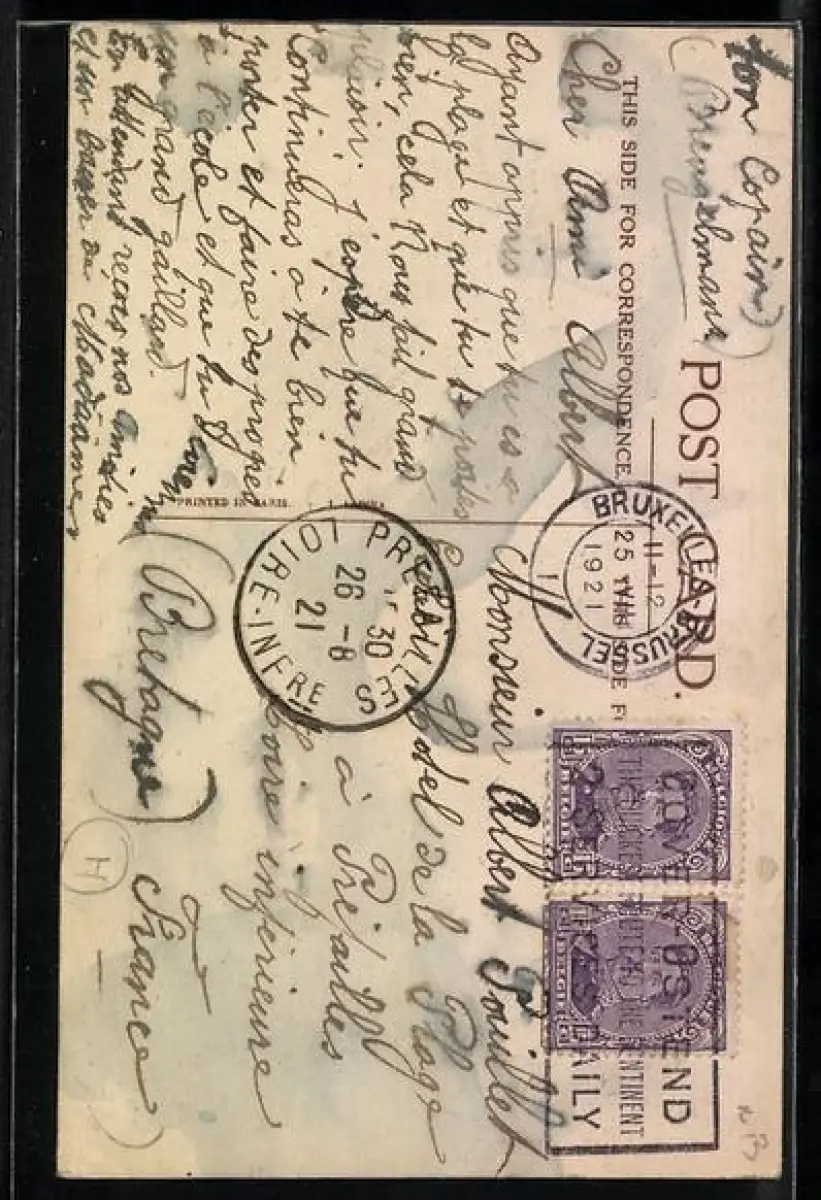 POST CARD.
THIS SIDE FOR CORRESPONDENCE.
Ton Copain
(Brengelmann)
Cher Ami Albert
Ayant appris que tu es à
la plage et que tu te portes
bien, cela nous fait grand
plaisir. J'espère que tu
Continueras à te bien
porter et faire des progrès
à l'école et que tu
un grand gaillard.
En attendant reçois nos amitiés
et un baiser
PRINTED IN PARIS.
BRUXELLES BRUSSEL
11-12
25
1921
DOVER-OSTEND
THE QUICKEST ROUTE TO THE CONTINENT
SERVICES DAILY
BELGIQUE
BELGIE
BELGIQUE
BELGIE
PREFAILLES
30
26-8
21
LOIRE-INFRE
Monsieur Albert Pouillet
Hôtel de la Plage
à Préfailles
Loire inférieure
(Bretagne) France)
H